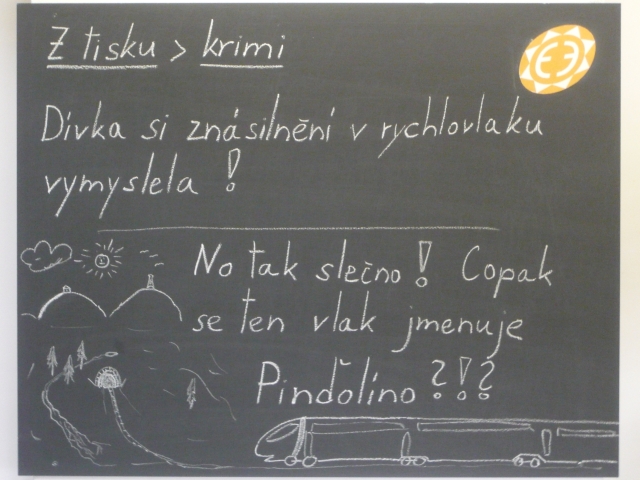 Z tisku > krimi
Dívka si znásilnění v rychlovlaku
vymyslela !
No tak slečno ! Copak
se ten vlak jmenuje
Pinďolíno ?!?